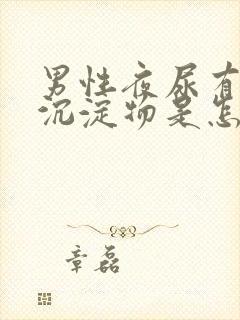 男性夜尿有
沉淀物是怎
章磊